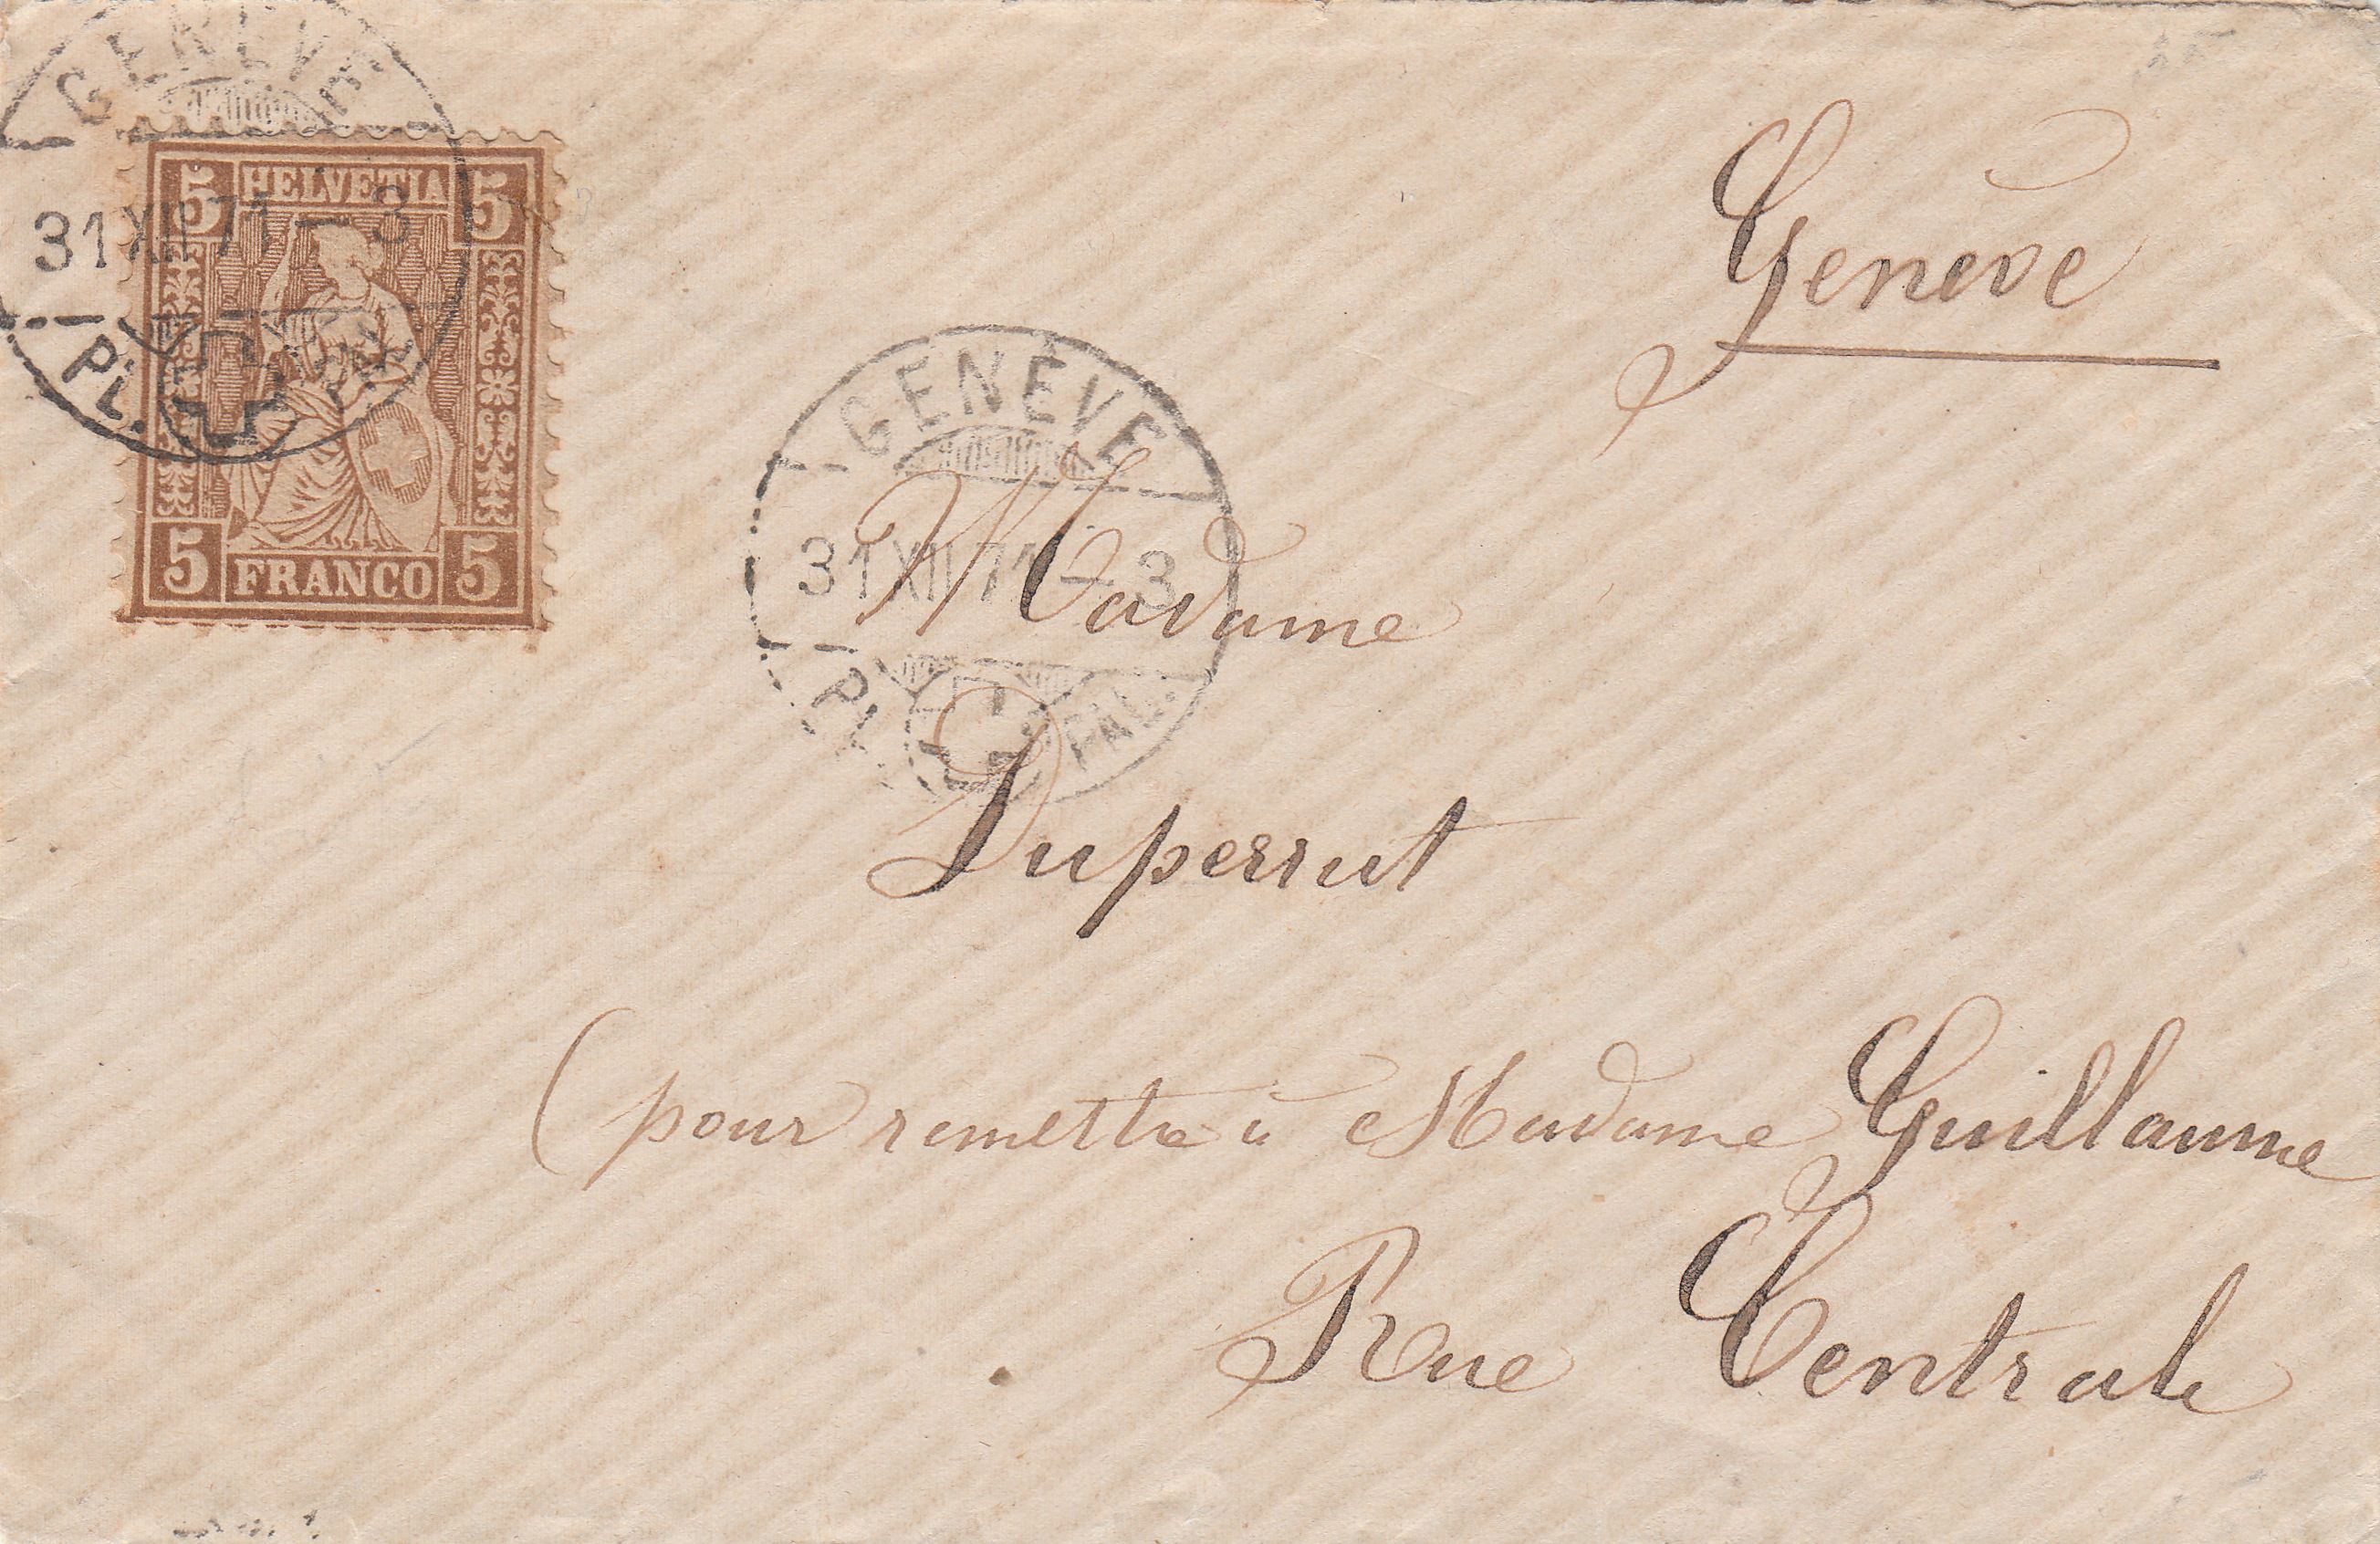 GENÈVE
5 HELVETIA 5
31 XII 71 – 3
PL.
5 FRANCO 5
Genève
GENÈVE
31 XII 71 – 3
PL. PAL.
Madame
Duperrut
(pour remettre à Madame Guillaume
Rue Centrale